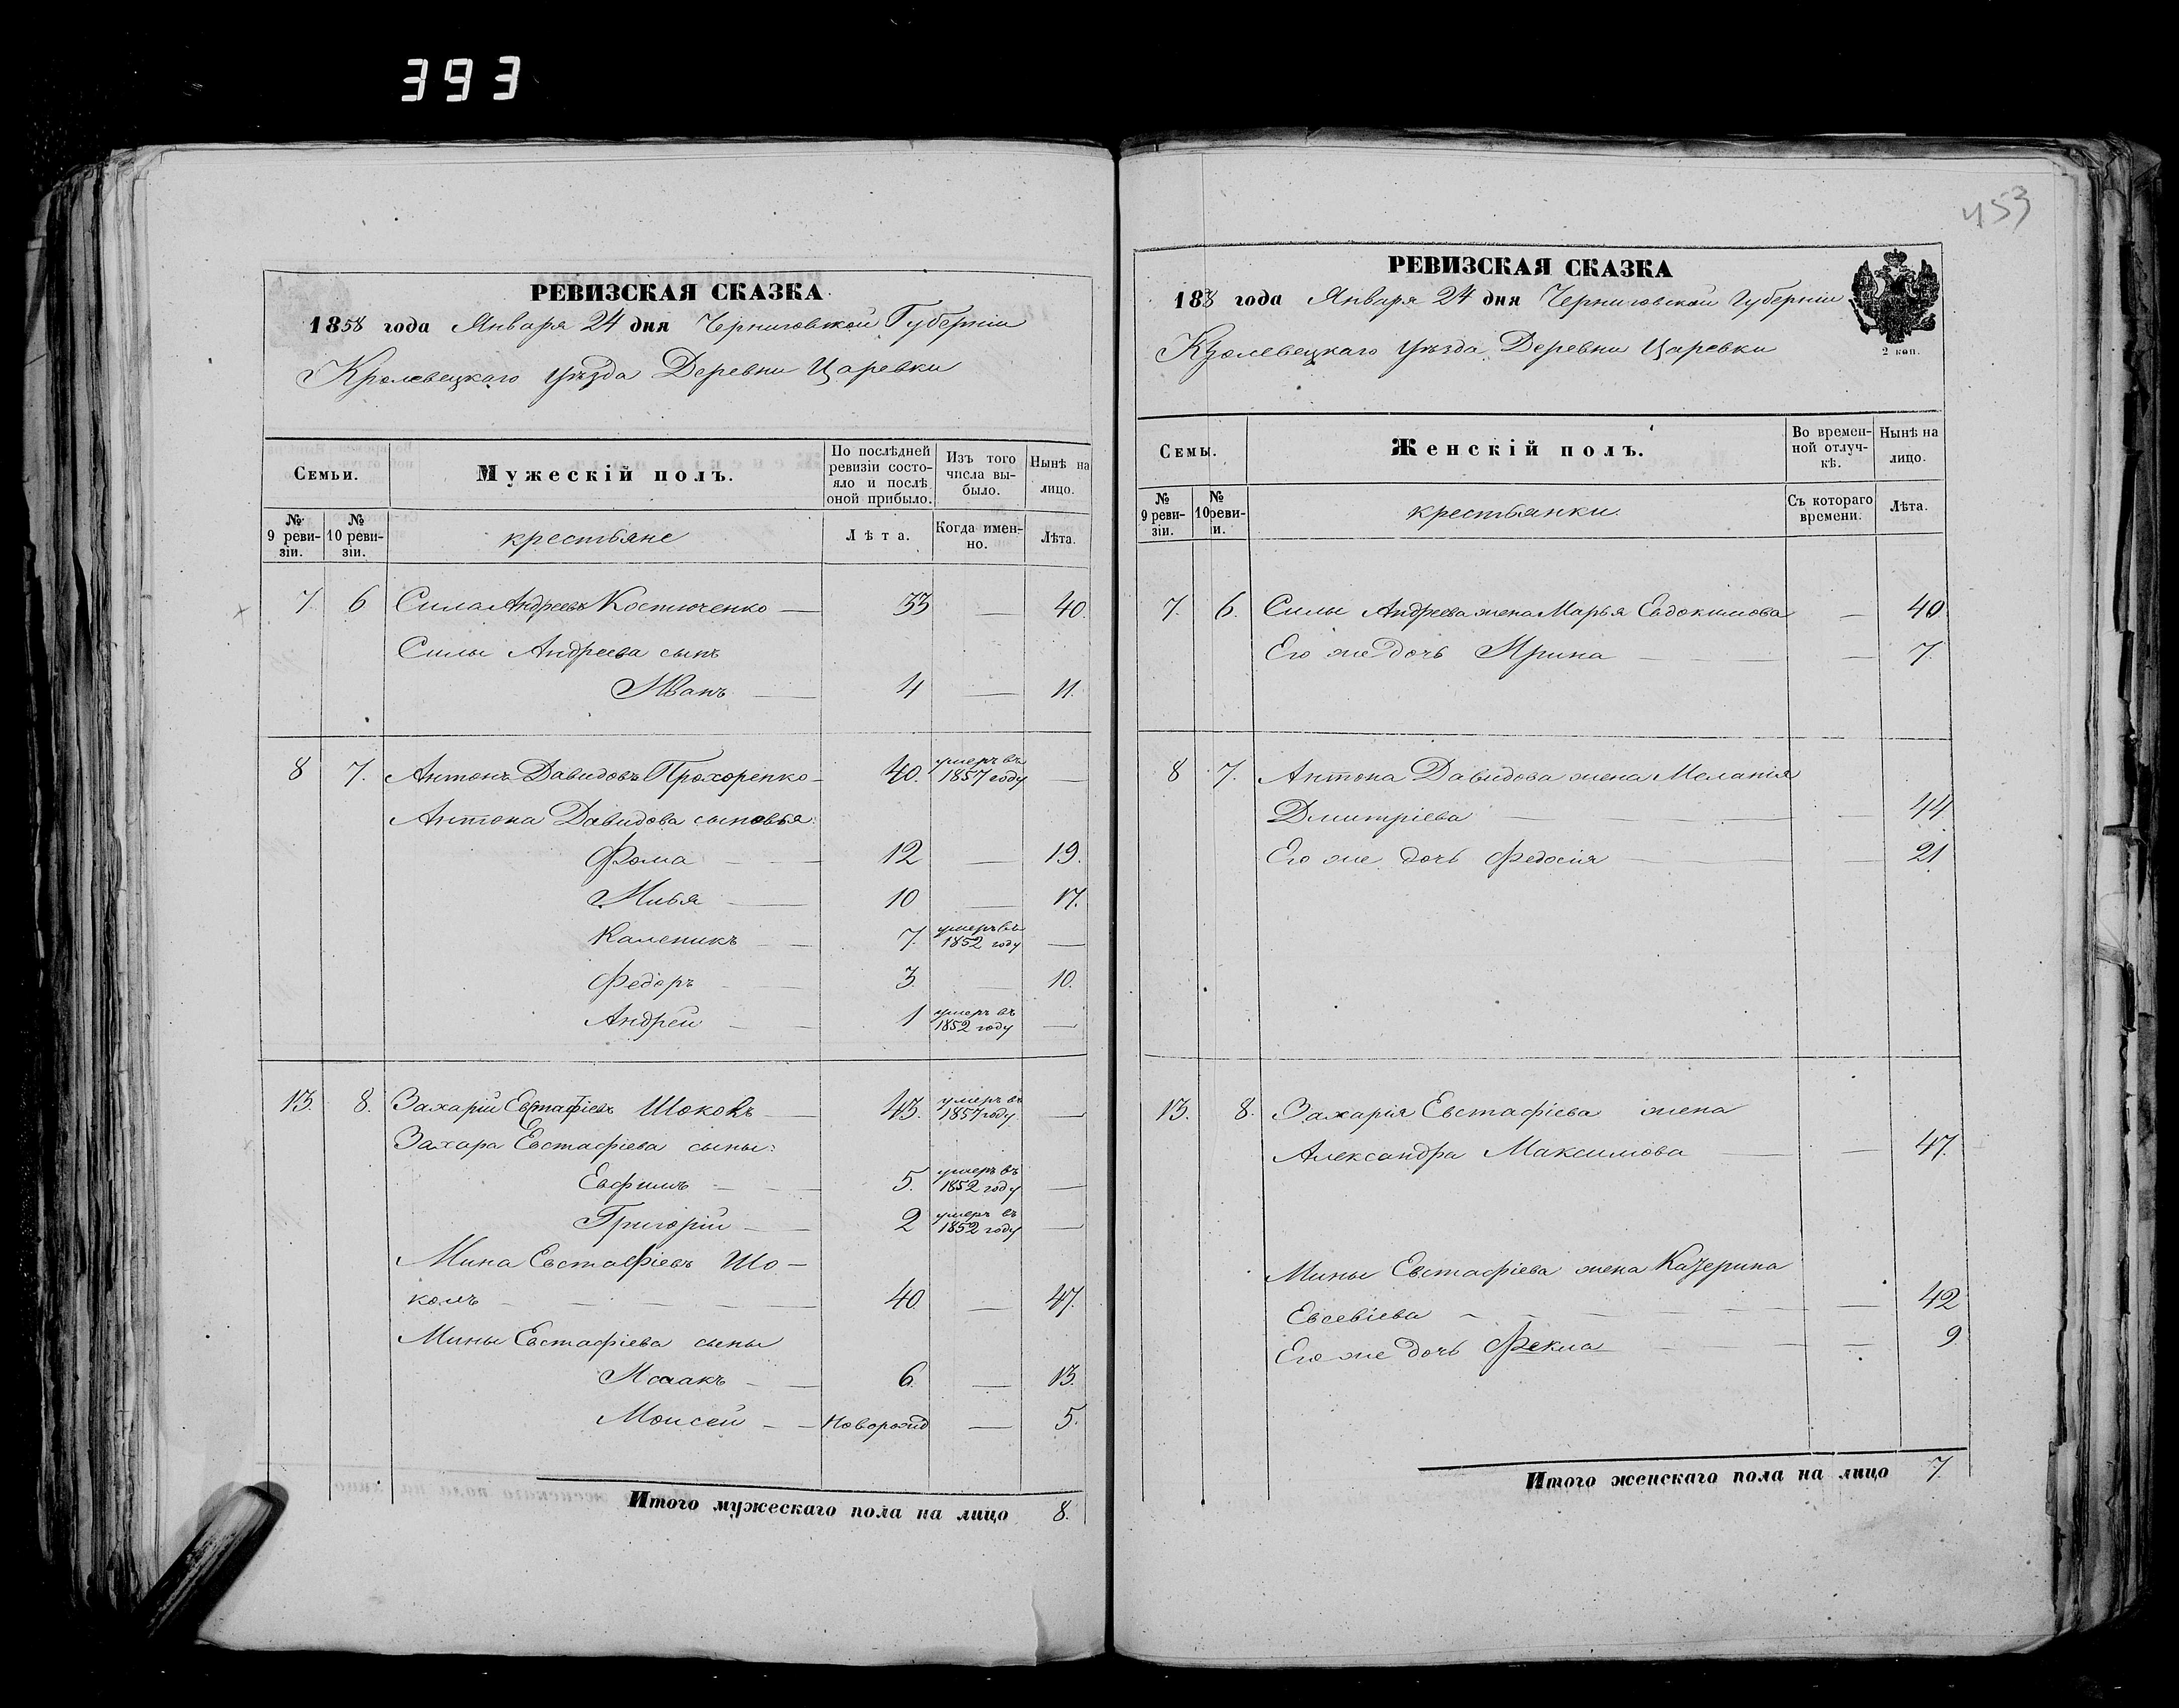 393
РЕВИЗСКАЯ СКАЗКА
1858 года Января 24 дня Черниговской Губерніи
Кролевецкаго Уѣзда Деревни Царевки
Семьи.
Мужескій полъ.
По послѣдней ревизіи состо-
яло и послѣ
оной прибыло.
Изъ того
числа вы-
было.
Нынѣ на
лицо.
№
9 реви-
зіи.
№
10 реви-
зіи.
крестьяне
Лѣта.
Когда имен-
но.
Лѣта.
7. 6 Сила Андреевъ Костюченко — 33 — 40.
Силы Андреева сынъ
Иванъ — 4 — 11.
8 7. Антонъ Давидовъ Прохоренко — 40. умеръ въ 1857 году —
Антона Давидова сыновья:
Фома — 12 — 19.
Илья — 10 — 17.
Каленикъ — 7. умеръ въ 1852 году —
Федоръ — 3. — 10.
Андрей — 1 умеръ въ 1852 году —
13. 8. Захарій Евстафіевъ Шоковъ — 43. умеръ въ 1857 году —
Захара Евстафіева сыны:
Евфимъ — 5. умеръ въ 1852 году —
Григорій — 2 умеръ въ 1852 году —
Мина Евстафіевъ Шо-
40. — 47.
Мины Евстафіева сыны
Исаакъ — 6. — 13.
Моисей — Новорожд — 5.
Итого мужескаго пола на лицо 8.
453
РЕВИЗСКАЯ СКАЗКА
1858 года Января 24 дня Черниговской Губерніи
Кролевецкаго Уѣзда Деревни Царевки
2 коп.
Семьи.
Женскій полъ.
Во времен-
ной отлуч-
кѣ.
Нынѣ на
лицо.
№
9 реви-
зіи.
№
10 реви-
и.
крестьянки.
Съ котораго
времени.
Лѣта.
7. 6. Силы Андреева жена Марья Евдокимова — 40
Его же дочь Ирина — 7.
8 7. Антона Давидова жена Меланія
Дмитріева — 44
Его же дочь Федосія — 21
13. 8. Захарія Евстафіева жена
Александра Максимова — 47.
Мины Евстафіева жена Катерина
Евсевіева — 42
Его же дочь Фекла — 9
Итого женскаго пола на лицо 7.